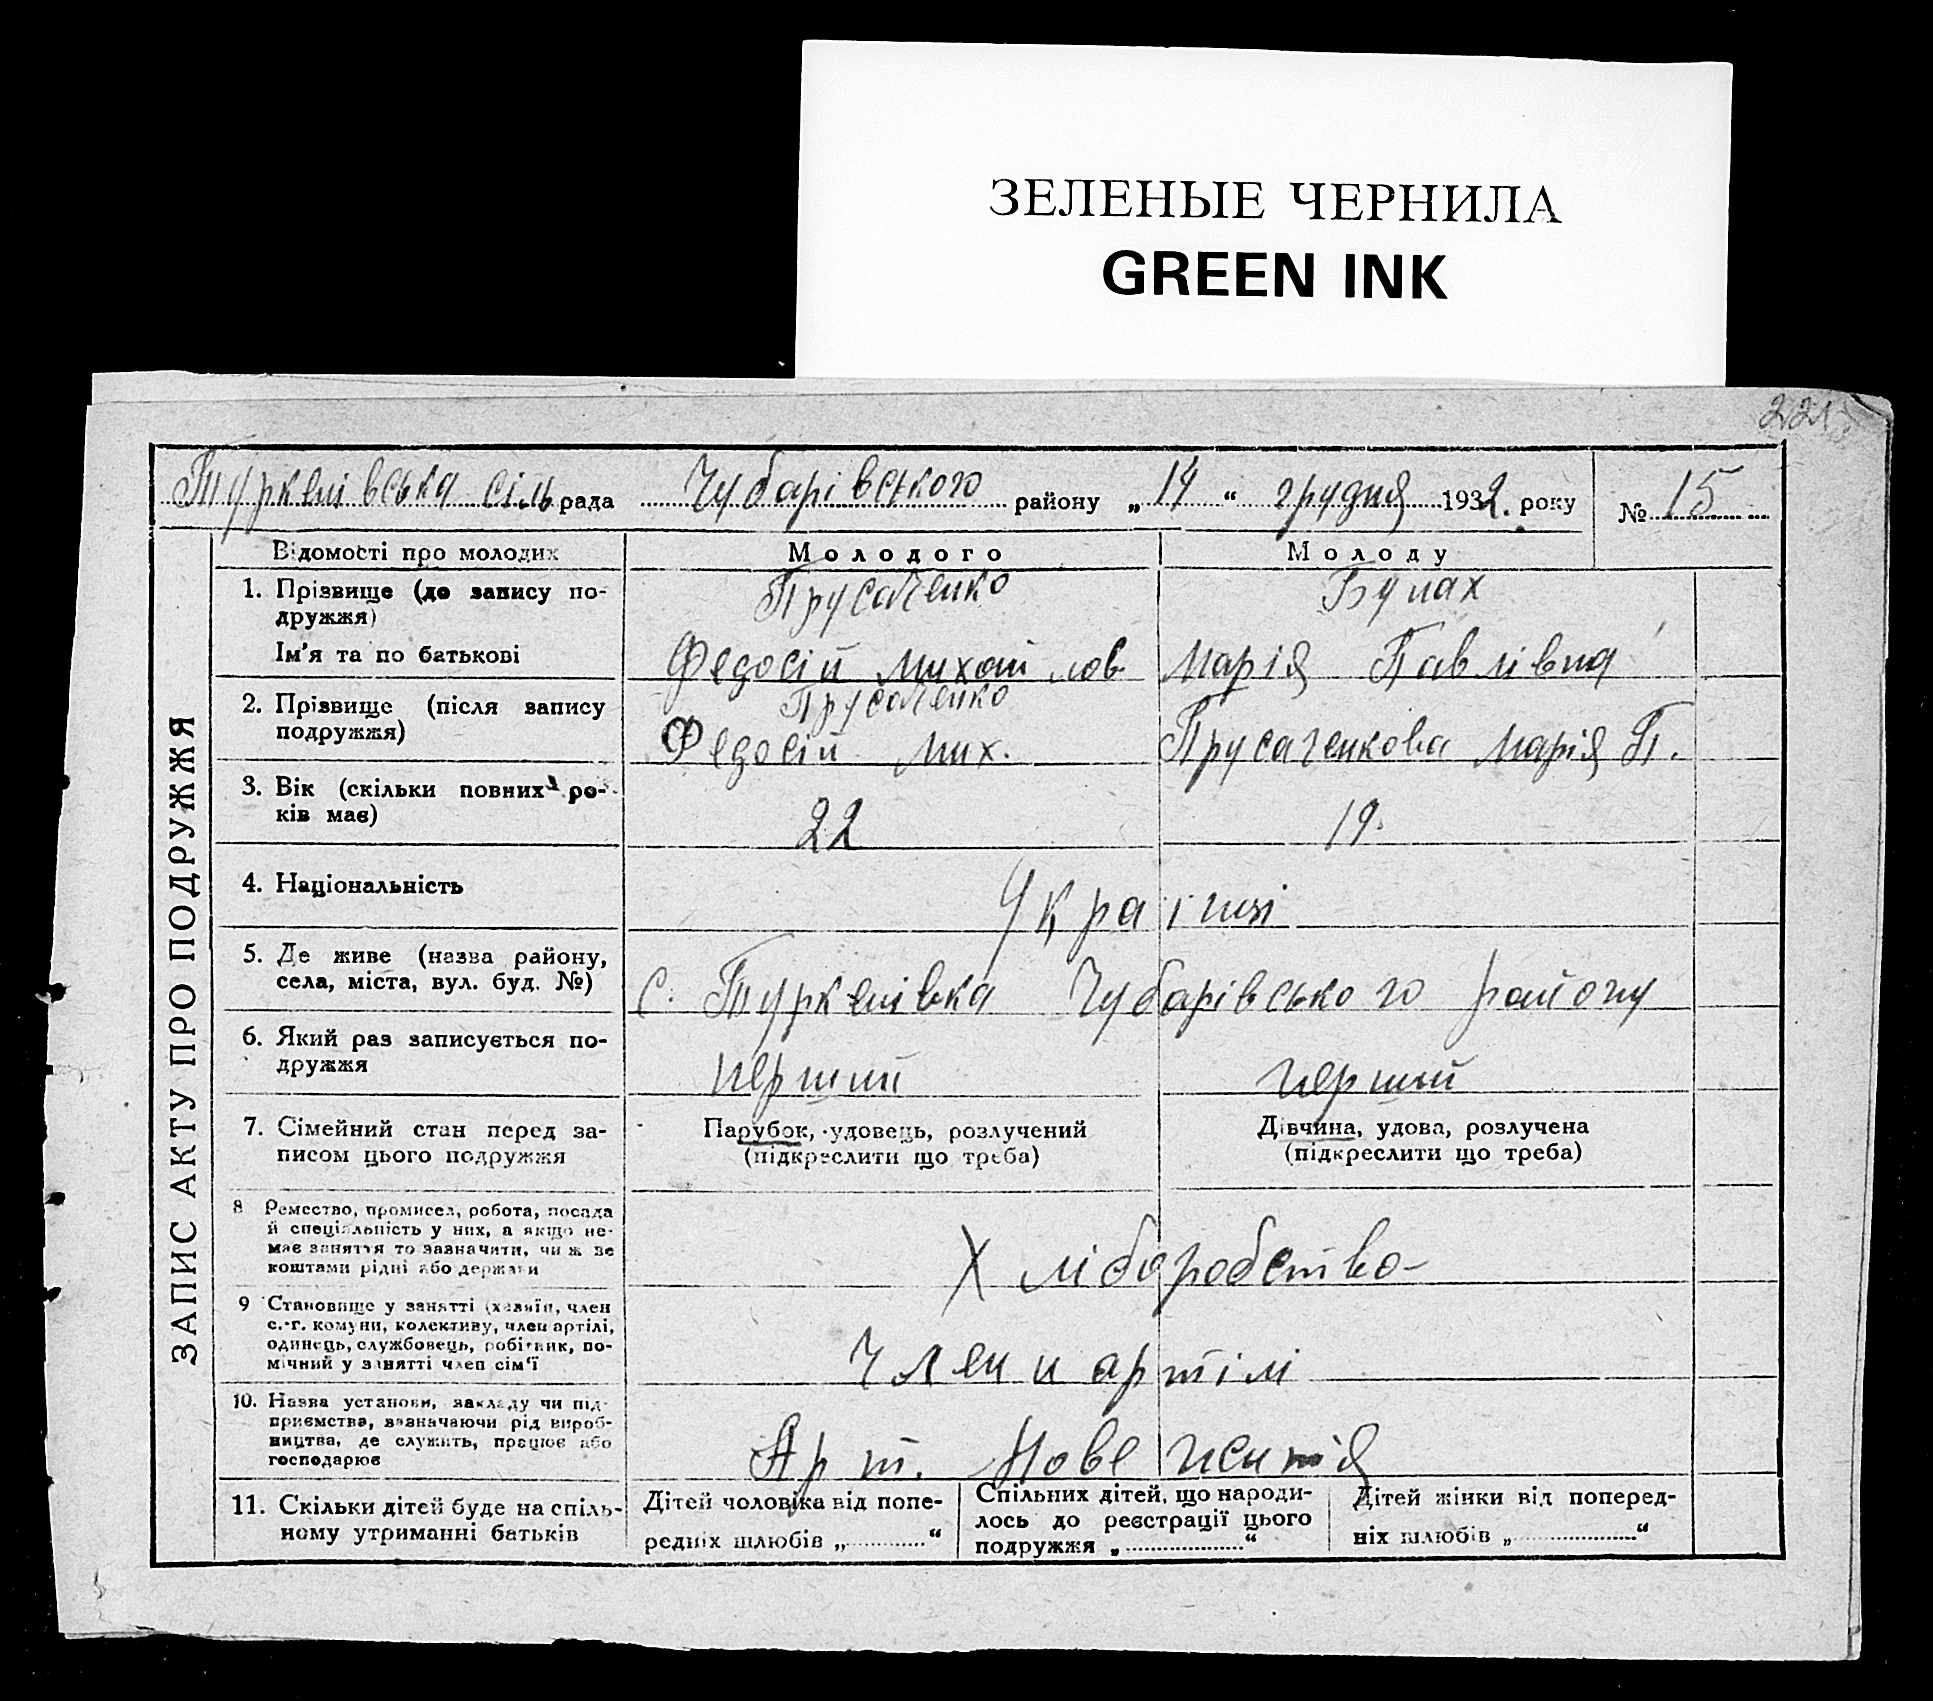 ЗЕЛЕНЫЕ ЧЕРНИЛА
GREEN INK
221
Туркенівська сіль рада Чубарівського району „14“ грудня 1932. року № 15
ЗАПИС АКТУ ПРО ПОДРУЖЖЯ
Відомості про молодих Молодого Молоду
1. Прізвище (до запису по-
дружжя)
Прусаченко Булах
Ім'я та по батькові Федосій Михайлов Марія Павлівна
2. Прізвище (після запису
подружжя)
Прусаченко
Федосій Мих. Прусаченкова Марія П.
3. Вік (скільки повних ро-
ків має)
22 19.
4. Національність
Україниі
5. Де живе (назва району,
села, міста, вул. буд. №)
с. Туркенівка Чубарівського району
6. Який раз записується по-
дружжя
перший перший
7. Сімейний стан перед за-
писом цього подружжя
Парубок, удовець, розлучений
(підкреслити що треба)
Дівчина, удова, розлучена
(підкреслити що треба)
8 Ремество, промисел, робота, посада
й спеціяльність у них, а якщо не-
має заняття то зазначити, чи ж не
коштами рідні або держави
Хліборобство-
9 Становище у занятті (хазяїн, член
с.-г. комуни, колективу, член артілі,
одинець, службовець, робітник, по-
мічний у занятті член сім'ї
Члени артілі
10. Назва установи, закладу чи під-
приємства, зазначаючи рід вироб-
ництва, де служить, працює або
господарює
Арт. Нове
11. Скільки дітей буде на спіль-
ному утриманні батьків
Дітей чоловіка від попе-
редніх шлюбів „............“
Спільних дітей, що народи-
лось до реєстрації цього
подружжя „............“
Дітей жінки від поперед-
ніх шлюбів „............“